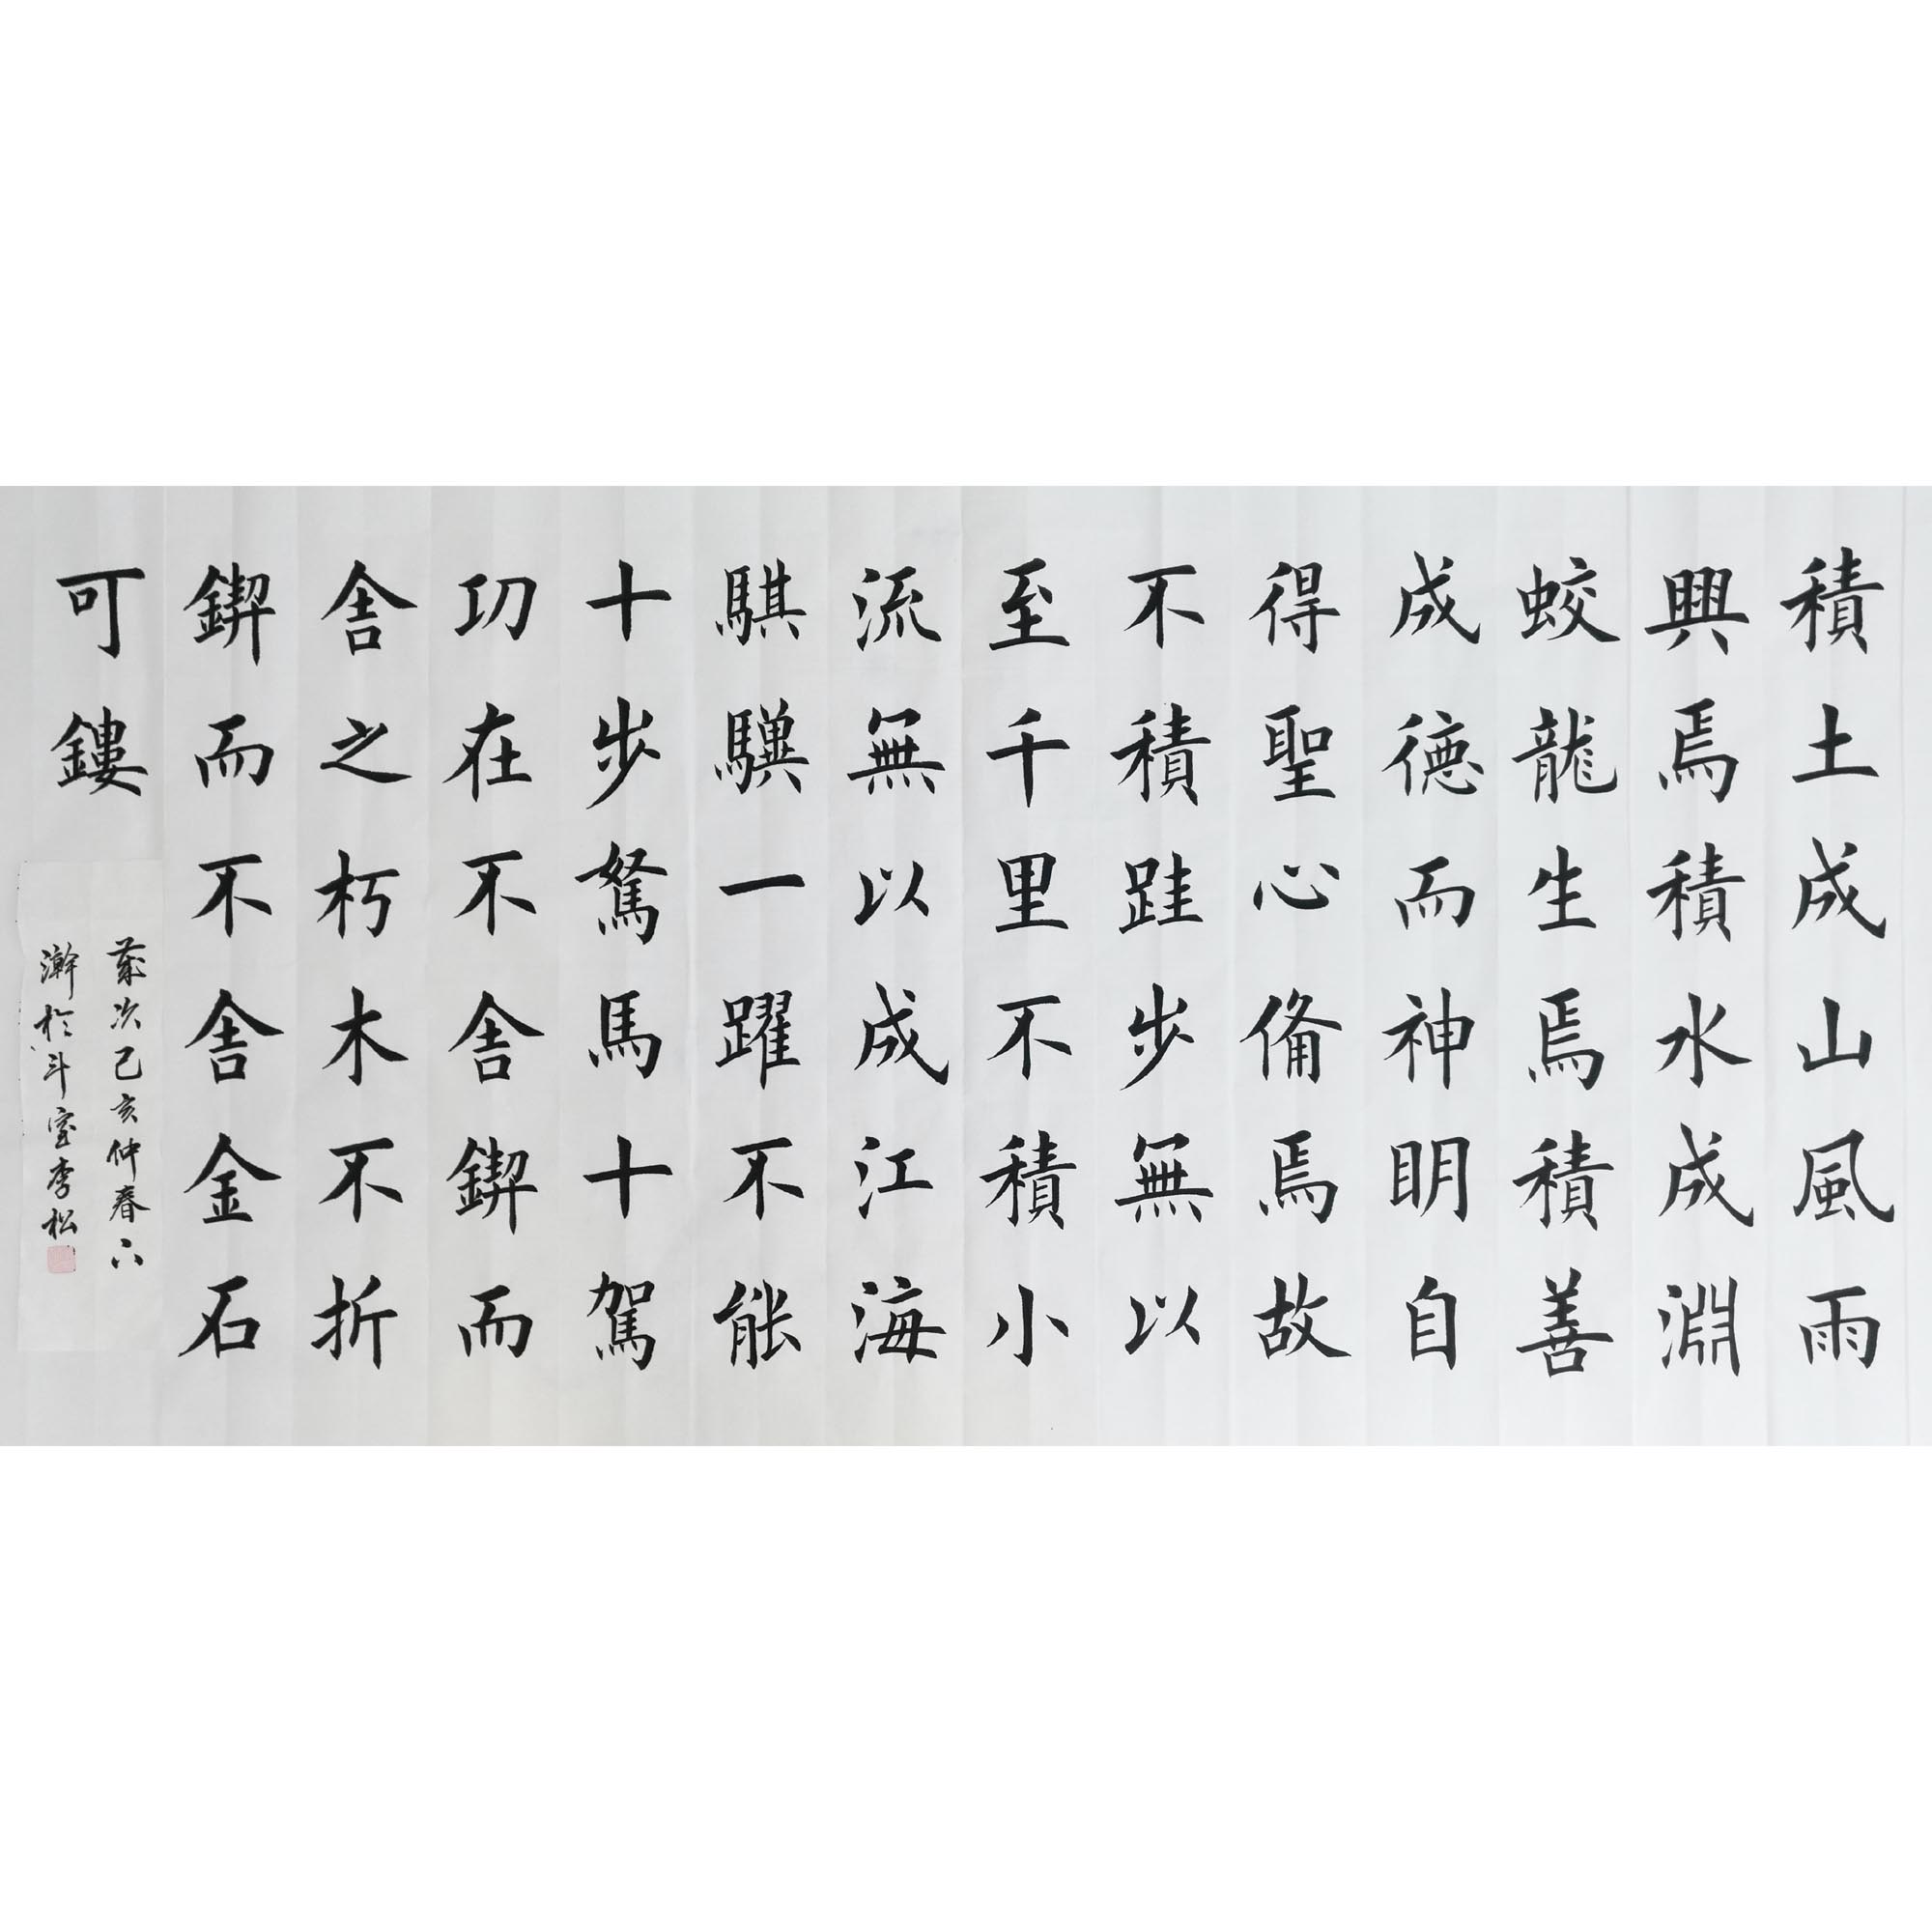 積土成山風雨
興焉積水成淵
蛟龍生焉積善
成德而神明自
得聖心備焉故
不積跬步無以
至千里不積小
流無以成江海
騏驥一躍不能
十步駑馬十駕
功在不舍鍥而
舍之朽木不折
鍥而不舍金石
可鏤
歲次己亥仲春下
澣於斗室李松